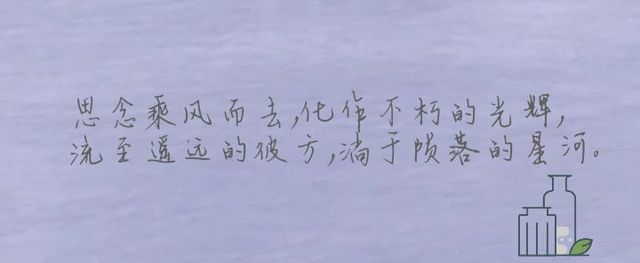 思念乘风而去,化作不朽的光辉,
流至遥远的彼方,淌于陨落的星河。